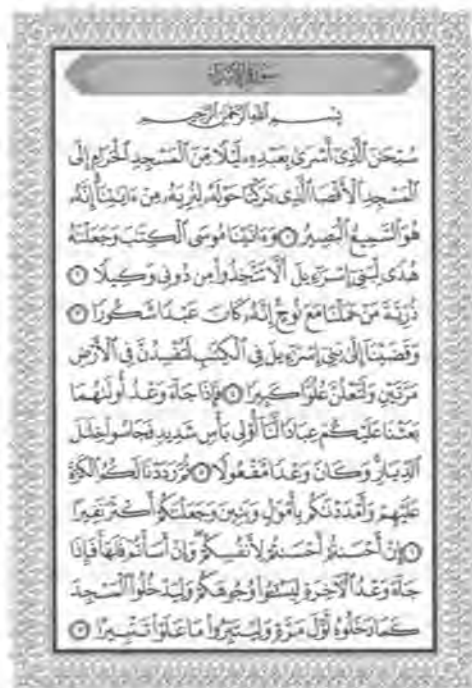 سورة الإسراء
بِسْمِ اللَّهِ الرَّحْمَٰنِ الرَّحِيمِ
سُبْحَٰنَ ٱلَّذِىٓ أَسْرَىٰ بِعَبْدِهِۦ لَيْلًا مِّنَ ٱلْمَسْجِدِ ٱلْحَرَامِ إِلَى
ٱلْمَسْجِدِ ٱلْأَقْصَا ٱلَّذِى بَٰرَكْنَا حَوْلَهُۥ لِنُرِيَهُۥ مِنْ ءَايَٰتِنَآ إِنَّهُۥ
هُوَ ٱلسَّمِيعُ ٱلْبَصِيرُ ۝١ وَءَاتَيْنَا مُوسَى ٱلْكِتَٰبَ وَجَعَلْنَٰهُ
هُدًى لِّبَنِىٓ إِسْرَٰٓءِيلَ أَلَّا تَتَّخِذُوا۟ مِن دُونِى وَكِيلًا ۝٢
ذُرِّيَّةَ مَنْ حَمَلْنَا مَعَ نُوحٍ إِنَّهُۥ كَانَ عَبْدًا شَكُورًا ۝٣
وَقَضَيْنَآ إِلَىٰ بَنِىٓ إِسْرَٰٓءِيلَ فِى ٱلْكِتَٰبِ لَتُفْسِدُنَّ فِى ٱلْأَرْضِ
مَرَّتَيْنِ وَلَتَعْلُنَّ عُلُوًّا كَبِيرًا ۝٤ فَإِذَا جَآءَ وَعْدُ أُولَىٰهُمَا
بَعَثْنَا عَلَيْكُمْ عِبَادًا لَّنَآ أُو۟لِى بَأْسٍ شَدِيدٍ فَجَاسُوا۟ خِلَٰلَ
ٱلدِّيَارِ وَكَانَ وَعْدًا مَّفْعُولًا ۝٥ ثُمَّ رَدَدْنَا لَكُمُ ٱلْكَرَّةَ
عَلَيْهِمْ وَأَمْدَدْنَٰكُم بِأَمْوَٰلٍ وَبَنِينَ وَجَعَلْنَٰكُمْ أَكْثَرَ نَفِيرًا
۝٦ إِنْ أَحْسَنتُمْ أَحْسَنتُمْ لِأَنفُسِكُمْ وَإِنْ أَسَأْتُمْ فَلَهَا فَإِذَا
جَآءَ وَعْدُ ٱلْءَاخِرَةِ لِيَسُۥٓـُٔوا۟ وُجُوهَكُمْ وَلِيَدْخُلُوا۟ ٱلْمَسْجِدَ
كَمَا دَخَلُوهُ أَوَّلَ مَرَّةٍ وَلِيُتَبِّرُوا۟ مَا عَلَوْا۟ تَتْبِيرًا ۝٧